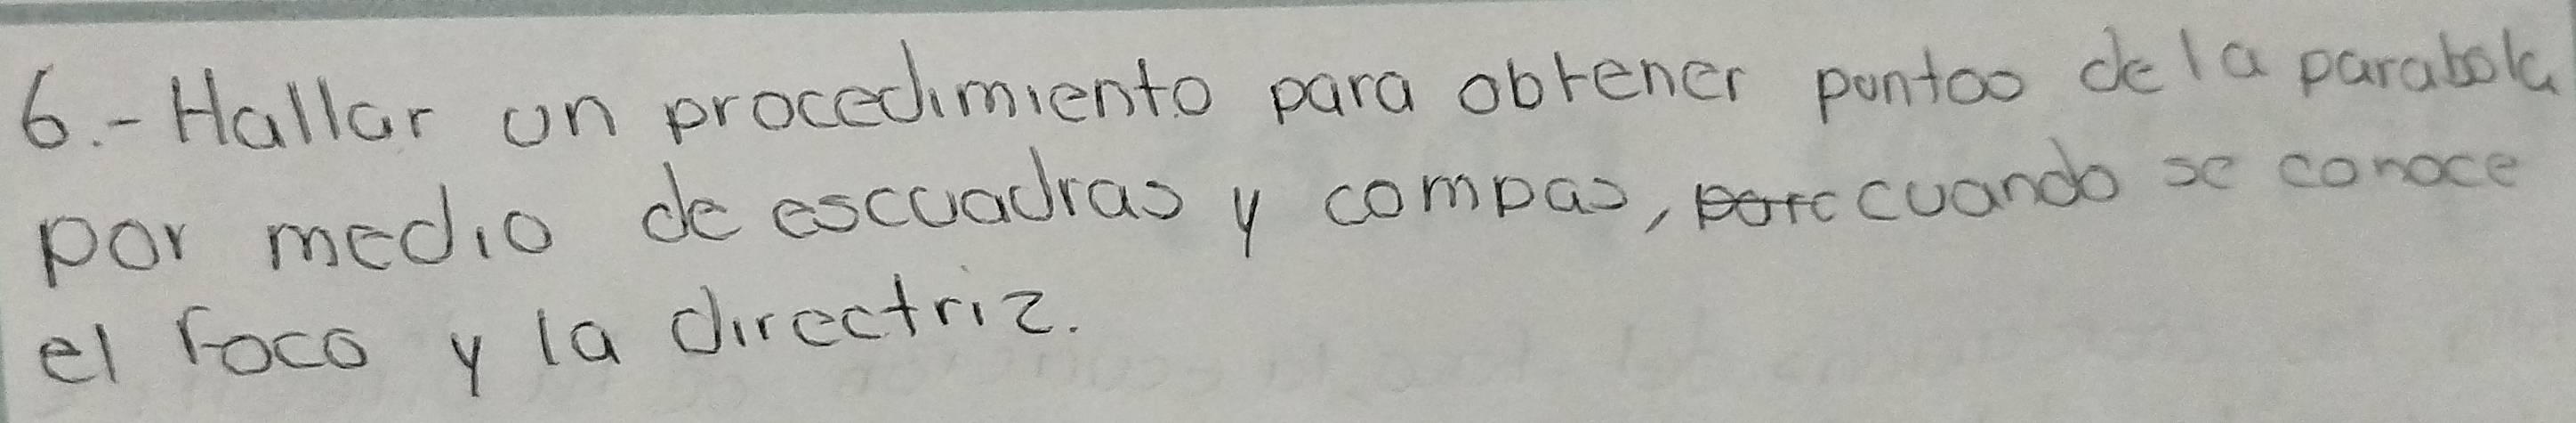 6.- Hallar un procedimiento para obtener puntos de la parabola
por medio de escuadras y compas, cuando se conoce
el foco y la directriz.